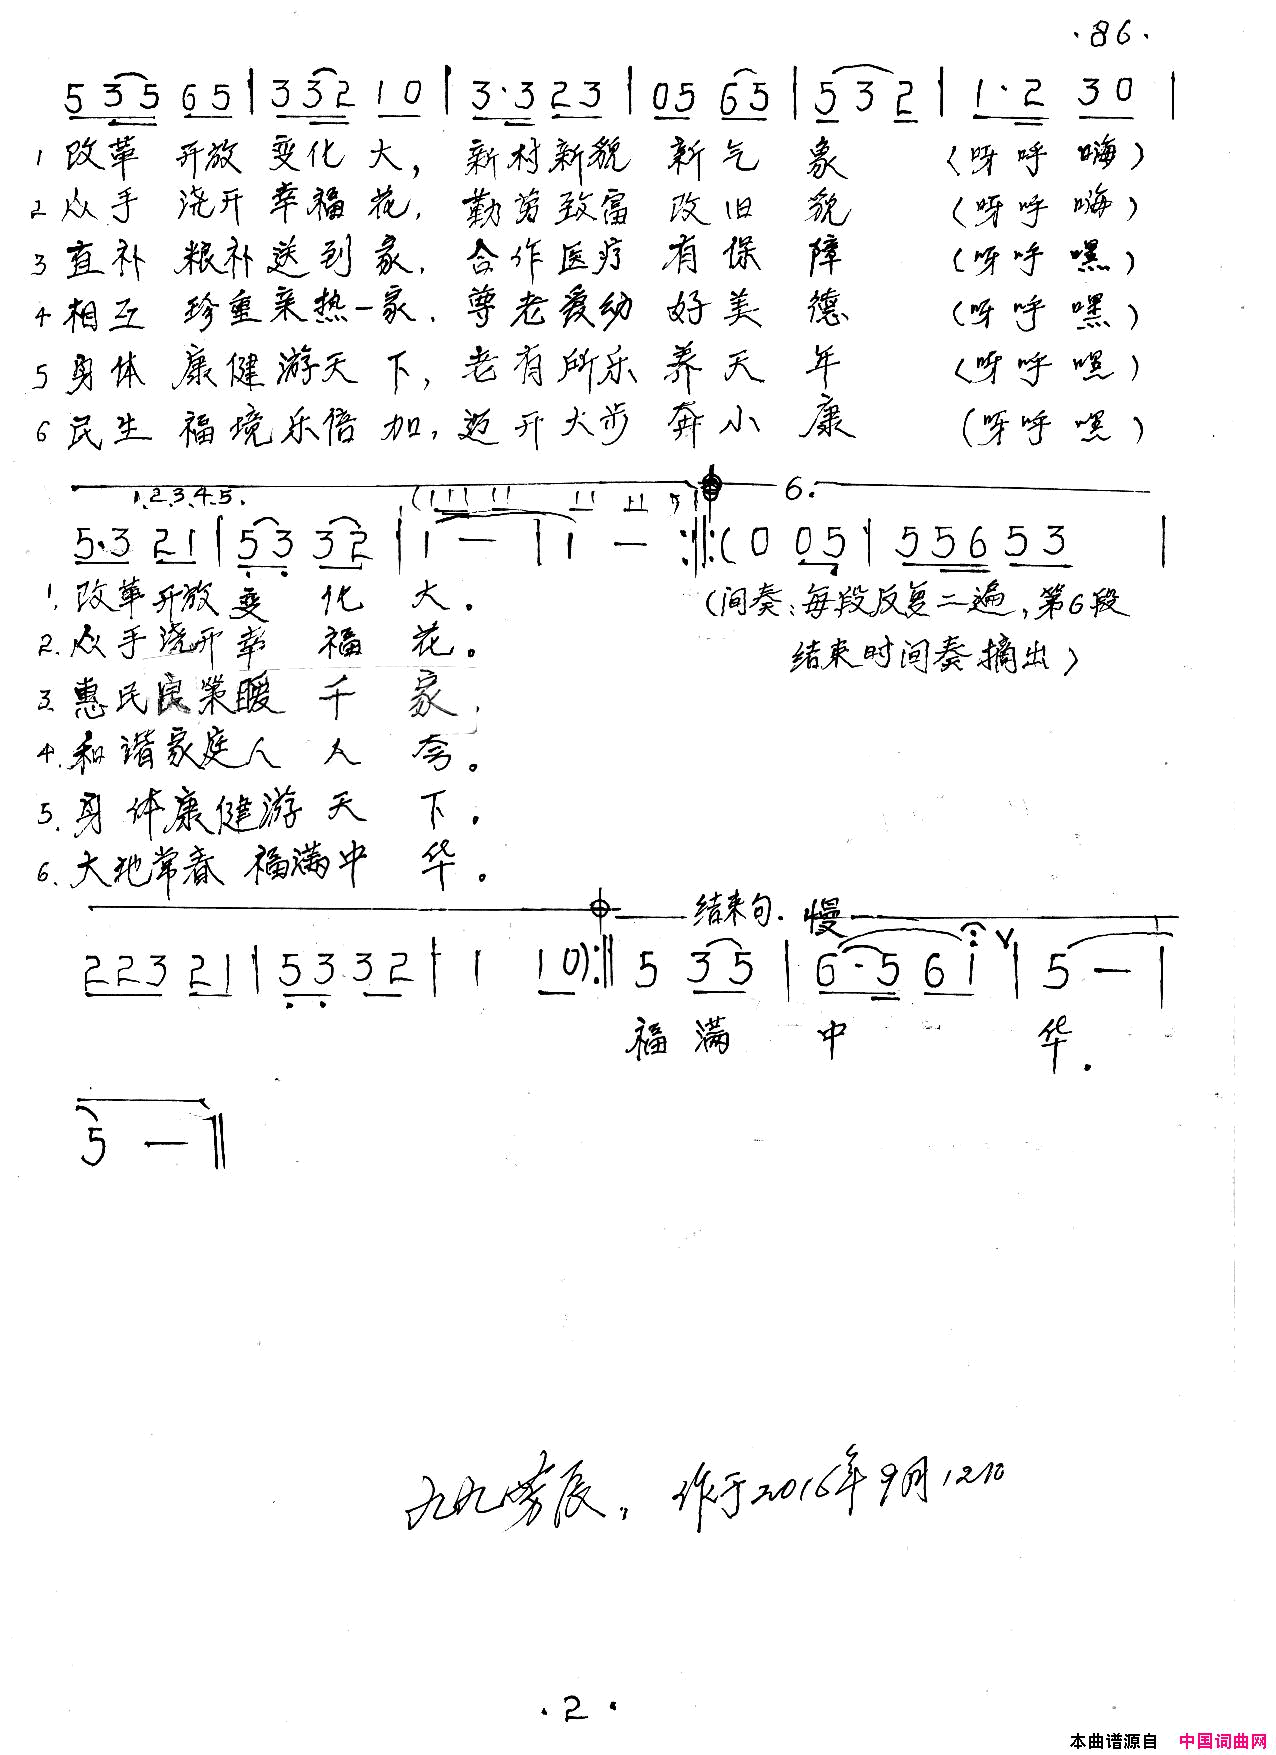 ·86·
5 3 5 6 5 | 3 3 2 1 0 | 3·3 2 3 | 0 5 6 5 | 5 3 2 | 1·2 3 0 |
1 改革 开放 变化大，新村新貌 新气象（呀呼嗨）
2 众手 浇开 幸福花，勤劳致富 改旧貌（呀呼嗨）
3 直补 粮补 送到家，合作医疗 有保障（呀呼嘿）
4 相互 珍重亲热一家，尊老爱幼 好美德（呀呼嘿）
5 身体 康健游天下，老有所乐 养天年（呀呼嘿）
6 民生 福境乐倍加，迈开大步 奔小康（呀呼嘿）
1.2.3.4.5. 6.
5·3 2 1 | 5 3 3 2 | 1 — | 1 — :‖: (0 0 5 | 5 5 6 5 3 |
1. 改革开放变化大。（间奏：每段反复二遍，第6段
2. 众手浇开幸福花。结束时间奏摘出）
3. 惠民良策暖千家，
4. 和谐家庭人人夸。
5. 身体康健游天下。
6. 大地常春福满中华。
结束句. 慢
2 2 3 2 1 | 5 3 3 2 | 1 1 0) :‖ 5 3 5 | 6·5 6 i | 5 — |
福满中华.
5 — ‖
九九芳辰，作于2016年9月12日
·2·
本曲谱源自 中国词曲网